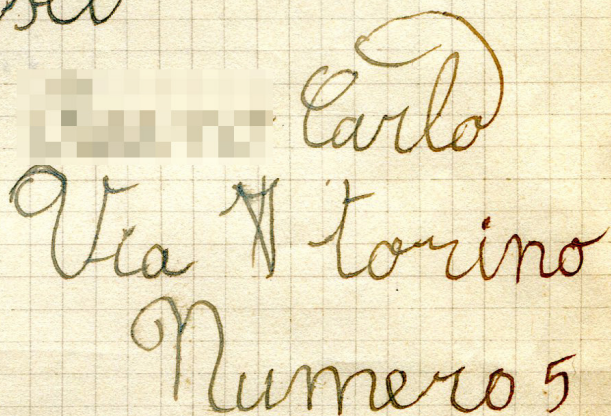 Carlo
Via torino
Numero 5